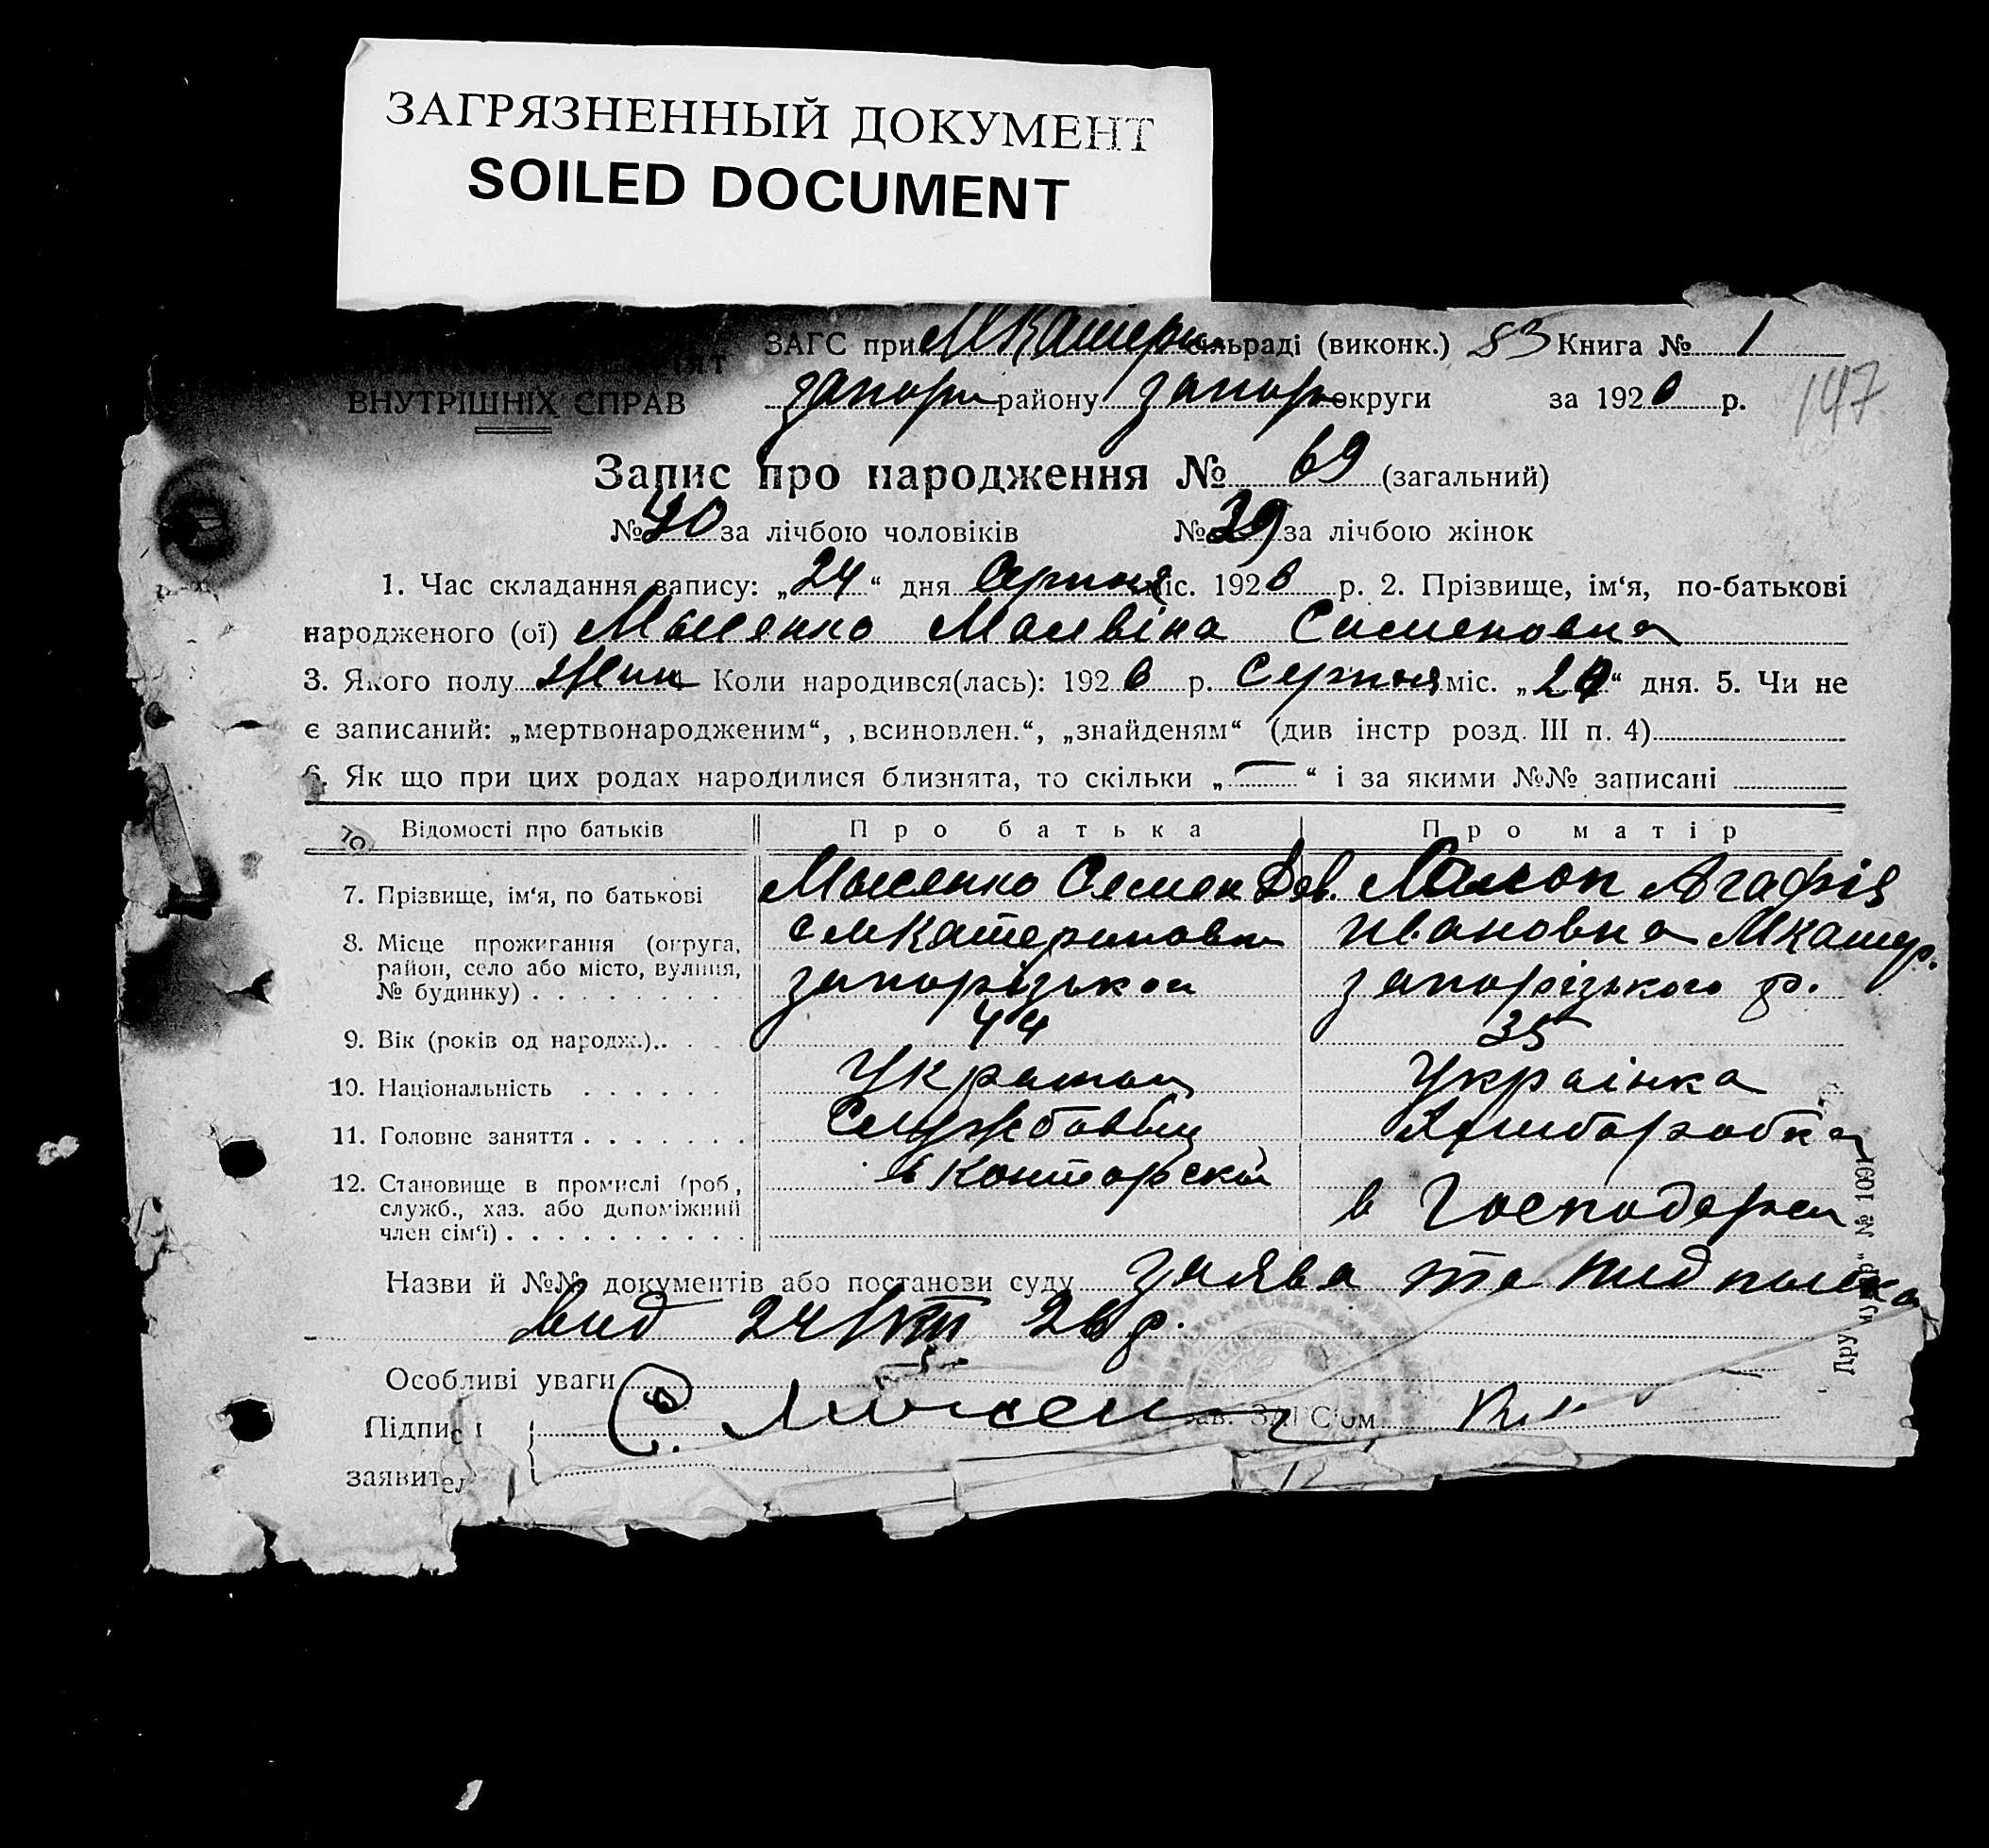 ЗАГРЯЗНЕННЫЙ ДОКУМЕНТ
SOILED DOCUMENT
ЗАГС при МКатерин сільраді (виконк.) 83 Книга № 1
ВНУТРІШНІХ СПРАВ
запор району запор округи за 1926 р.
147
Запис про народження № 69 (загальний)
№ 40 за лічбою чоловіків № 29 за лічбою жінок
1. Час складання запису: „24“ дня Серпня міс. 1926 р. 2. Прізвище, ім‘я, по-батькові
народженого (ої) Семеновна
3. Якого полу жин Коли народився(лась): 1926 р. Серпня міс. „20“ дня. 5. Чи не
є записаний: „мертвонародженим“, „всиновлен.“, „знайденям“ (див інстр розд. III п. 4)
6. Як що при цих родах народилися близнята, то скільки „—“ і за якими №№ записані
Відомості про батьків Про батька Про матір
7. Прізвище, ім‘я, по батькові Семен Агафія
8. Місце проживання (округа, район, село або місто, вулиця, № будинку)
с мКатериновка Ивановна МКатер.
запорізького р.
9. Вік (років од народж.) 44 35
10. Національність Українка
11. Головне заняття
12. Становище в промислі (роб, служб., хаз. або допоміжний член сім‘ї)
в Конторской
в
Назви й №№ документів або постанови суду заява та підписка
вид 24/VIII 26 р.
Особливі уваги
Підписи
Зав. ЗАГС‘ом
заявител
№ 1091